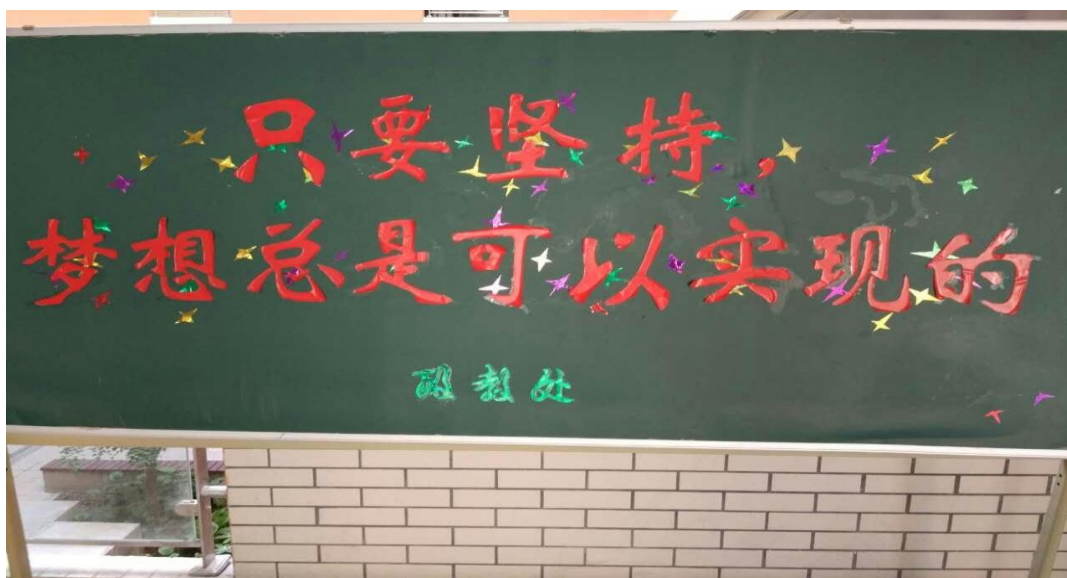 只要坚持，
梦想总是可以实现的
政教处